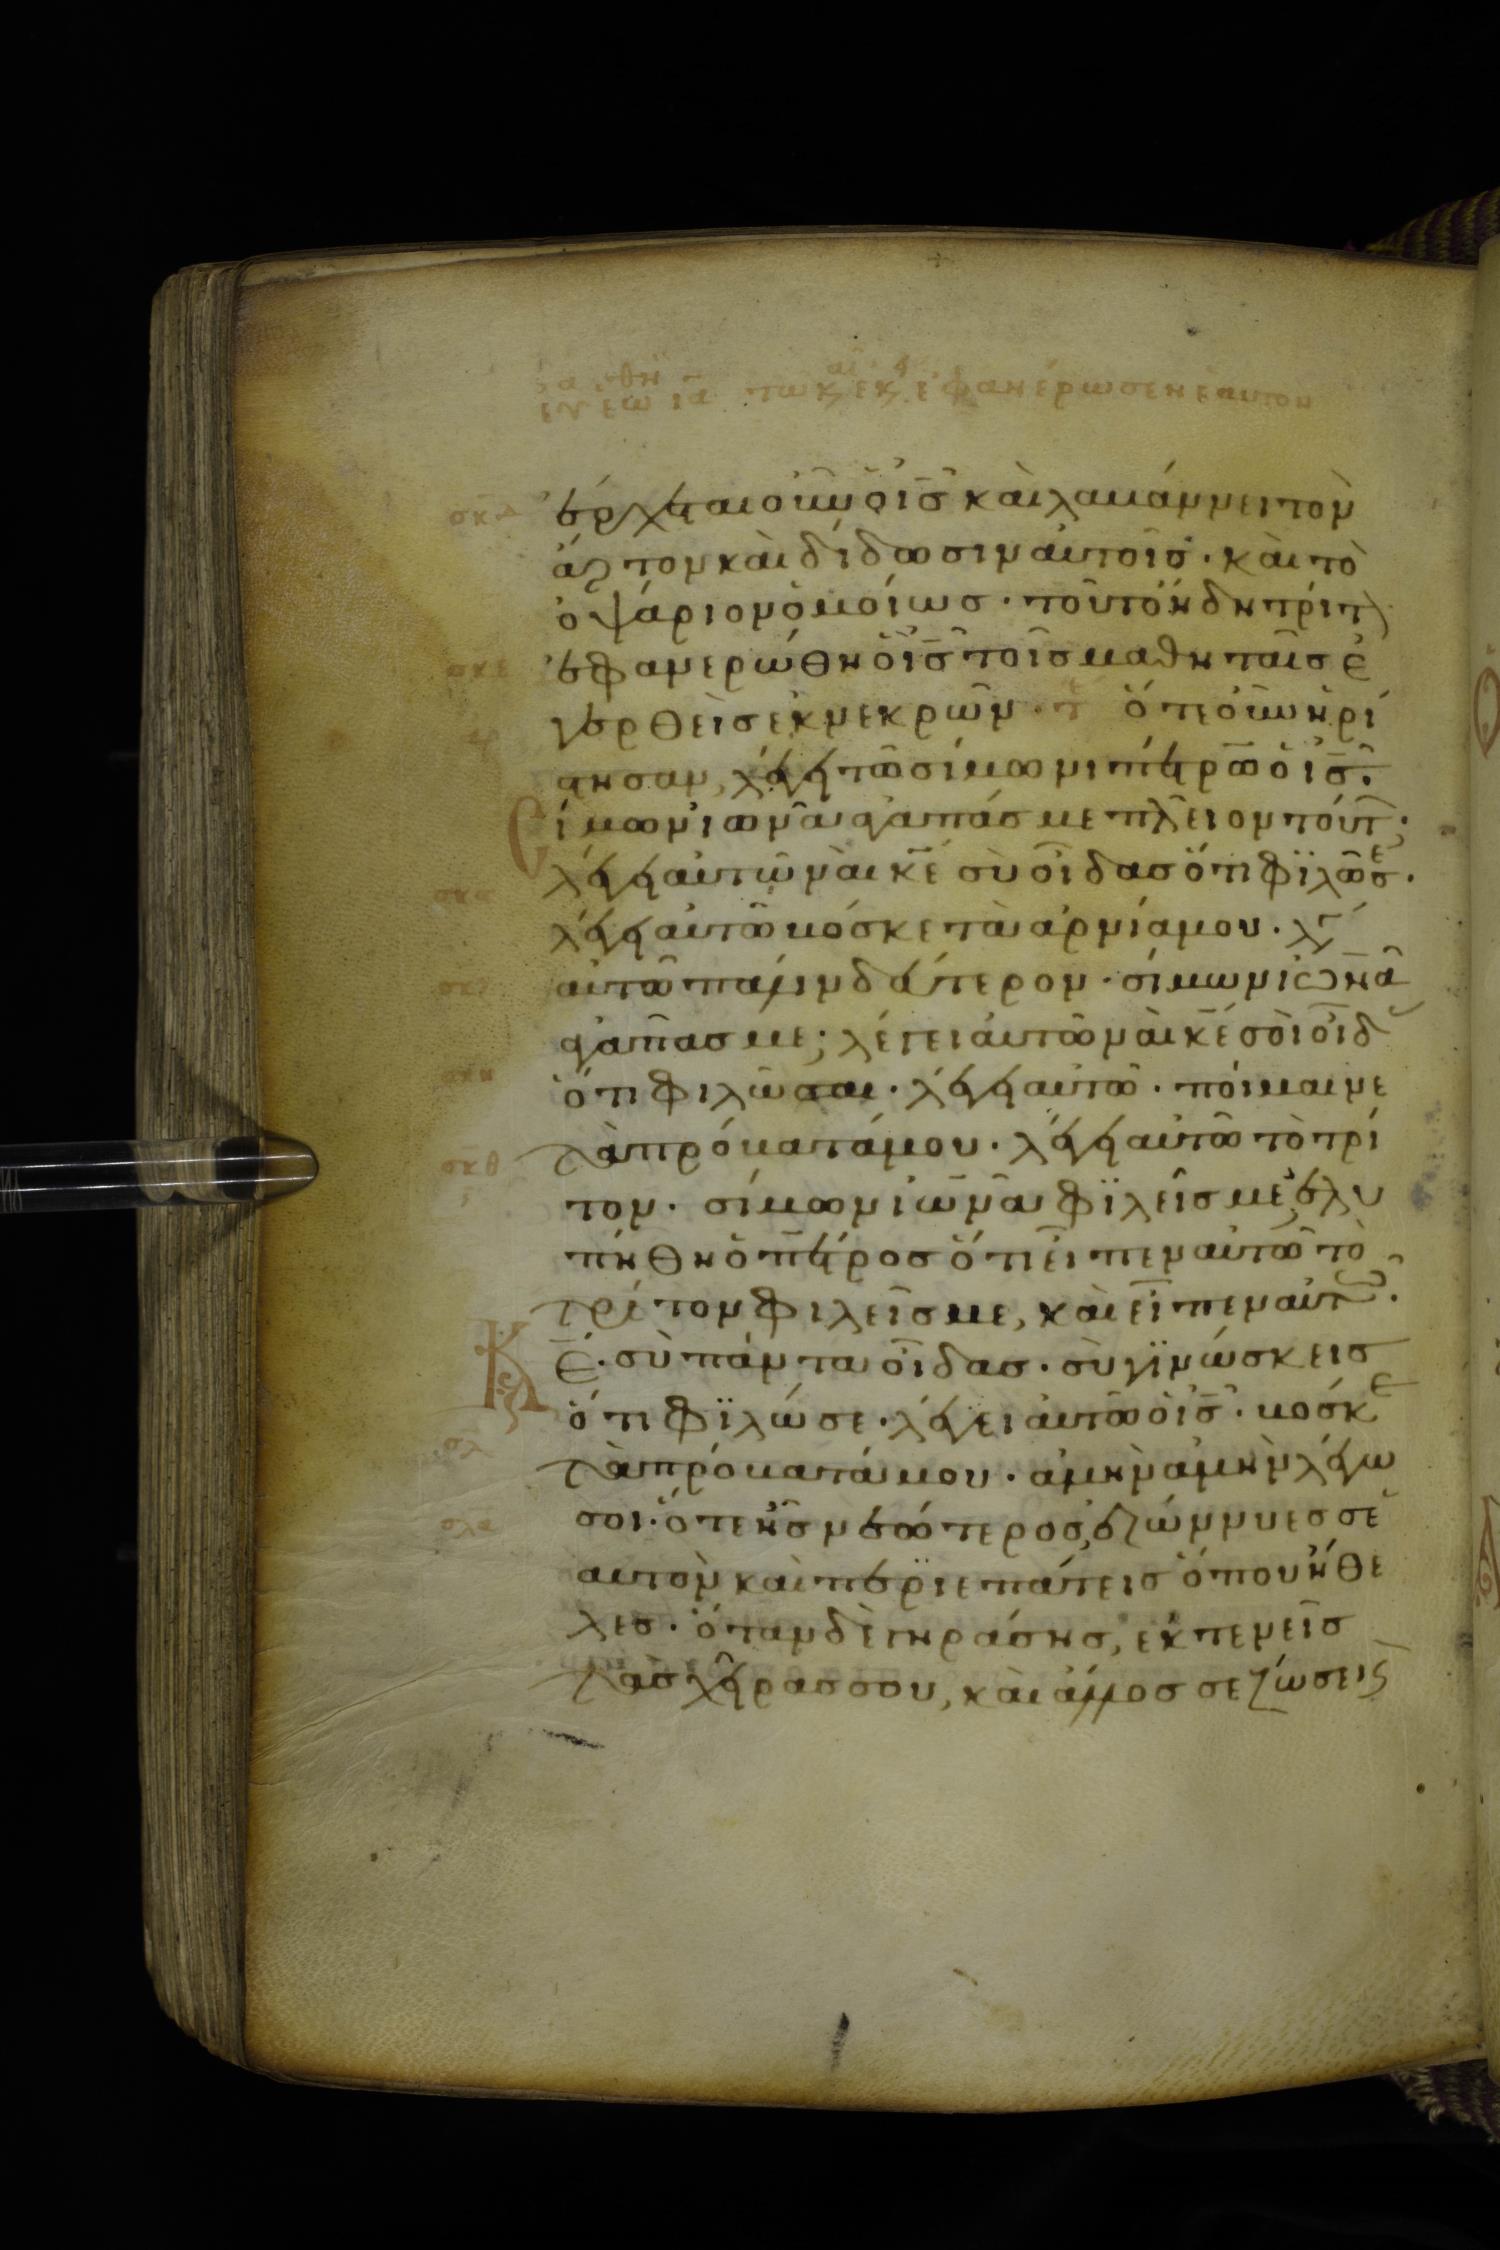 ἔρχεται οὖν ὁ ις̅ καὶ λαμβάνει τὸν
ἄρτον καὶ δίδωσιν αὐτοῖς· καὶ τὸ
ὀψάριον ὁμοίως· τοῦτο ἤδη τρίτ
ἐφανερώθη ὁ ις̅ τοῖς μαθηταῖς ἐ
γερθεὶς ἐκ νεκρῶν· ὅτε οὖν ἠρί
στησαν, λέγει τῶ σίμωνι πέτρω ὁ ις̅·
Σίμων ἰωνᾶ ἀγαπᾶς με πλεῖον τούτ;
λέγει αὐτῶ ναὶ κε̅ σὺ οἶδας ὅτι φϊλῶ σε·
λέγει αὐτῶ βόσκε τὰ ἀρνία μου· λέγ
αὐτῶ πάλιν δεύτερον· σίμων ἰωνᾶ
ἀγαπᾶς με; λέγει αὐτῶ ναὶ κε̅ σὺ οἶδ
ὅτι φιλῶ σαι· λέγει αὐτῶ· ποίμαινε
τὰ πρόβατά μου· λέγει αὐτῶ τὸ τρί
τον· σίμων ἰωνᾶ φϊλεῖς με, ἐλυ
πήθη ὁ πέτρος ὅτι εἶπεν αὐτῶ τὸ
τρίτον φιλεῖς με, καὶ εἶπεν αὐτῶ·
Κε̅· σὺ πάντα οἶδας· σὺ γϊνώσκεις
ὅτι φϊλῶ σε· λέγει αὐτῶ ὁ ις̅· βόσκε
τὰ πρόβατά μου· ἀμὴν ἀμὴν λέγω
σοι· ὅτε ἦς νεώτερος, ἐζώννυες σε
αυτὸν καὶ περϊεπάτεις ὅπου ἤθε
λες· ὅταν δὲ γηράσης, ἐκτενεῖς
τὰς χεῖρας σου, καὶ ἄλλος σε ζώσει ς